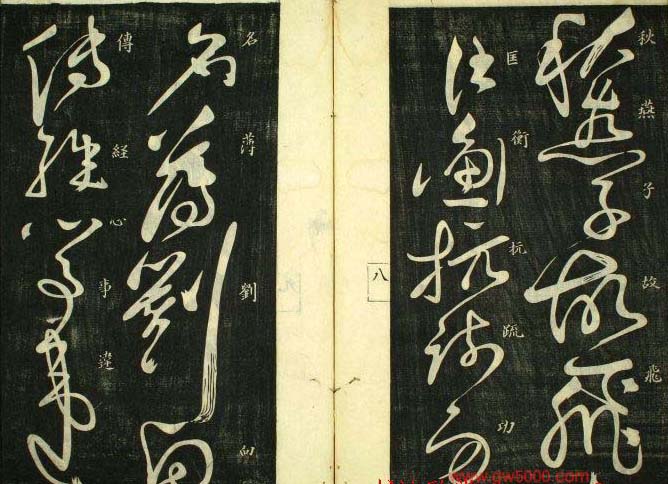 秋燕子故飛
匡衡抗疏功
八
名薄劉向
傳経心事違
www.gw5000.com